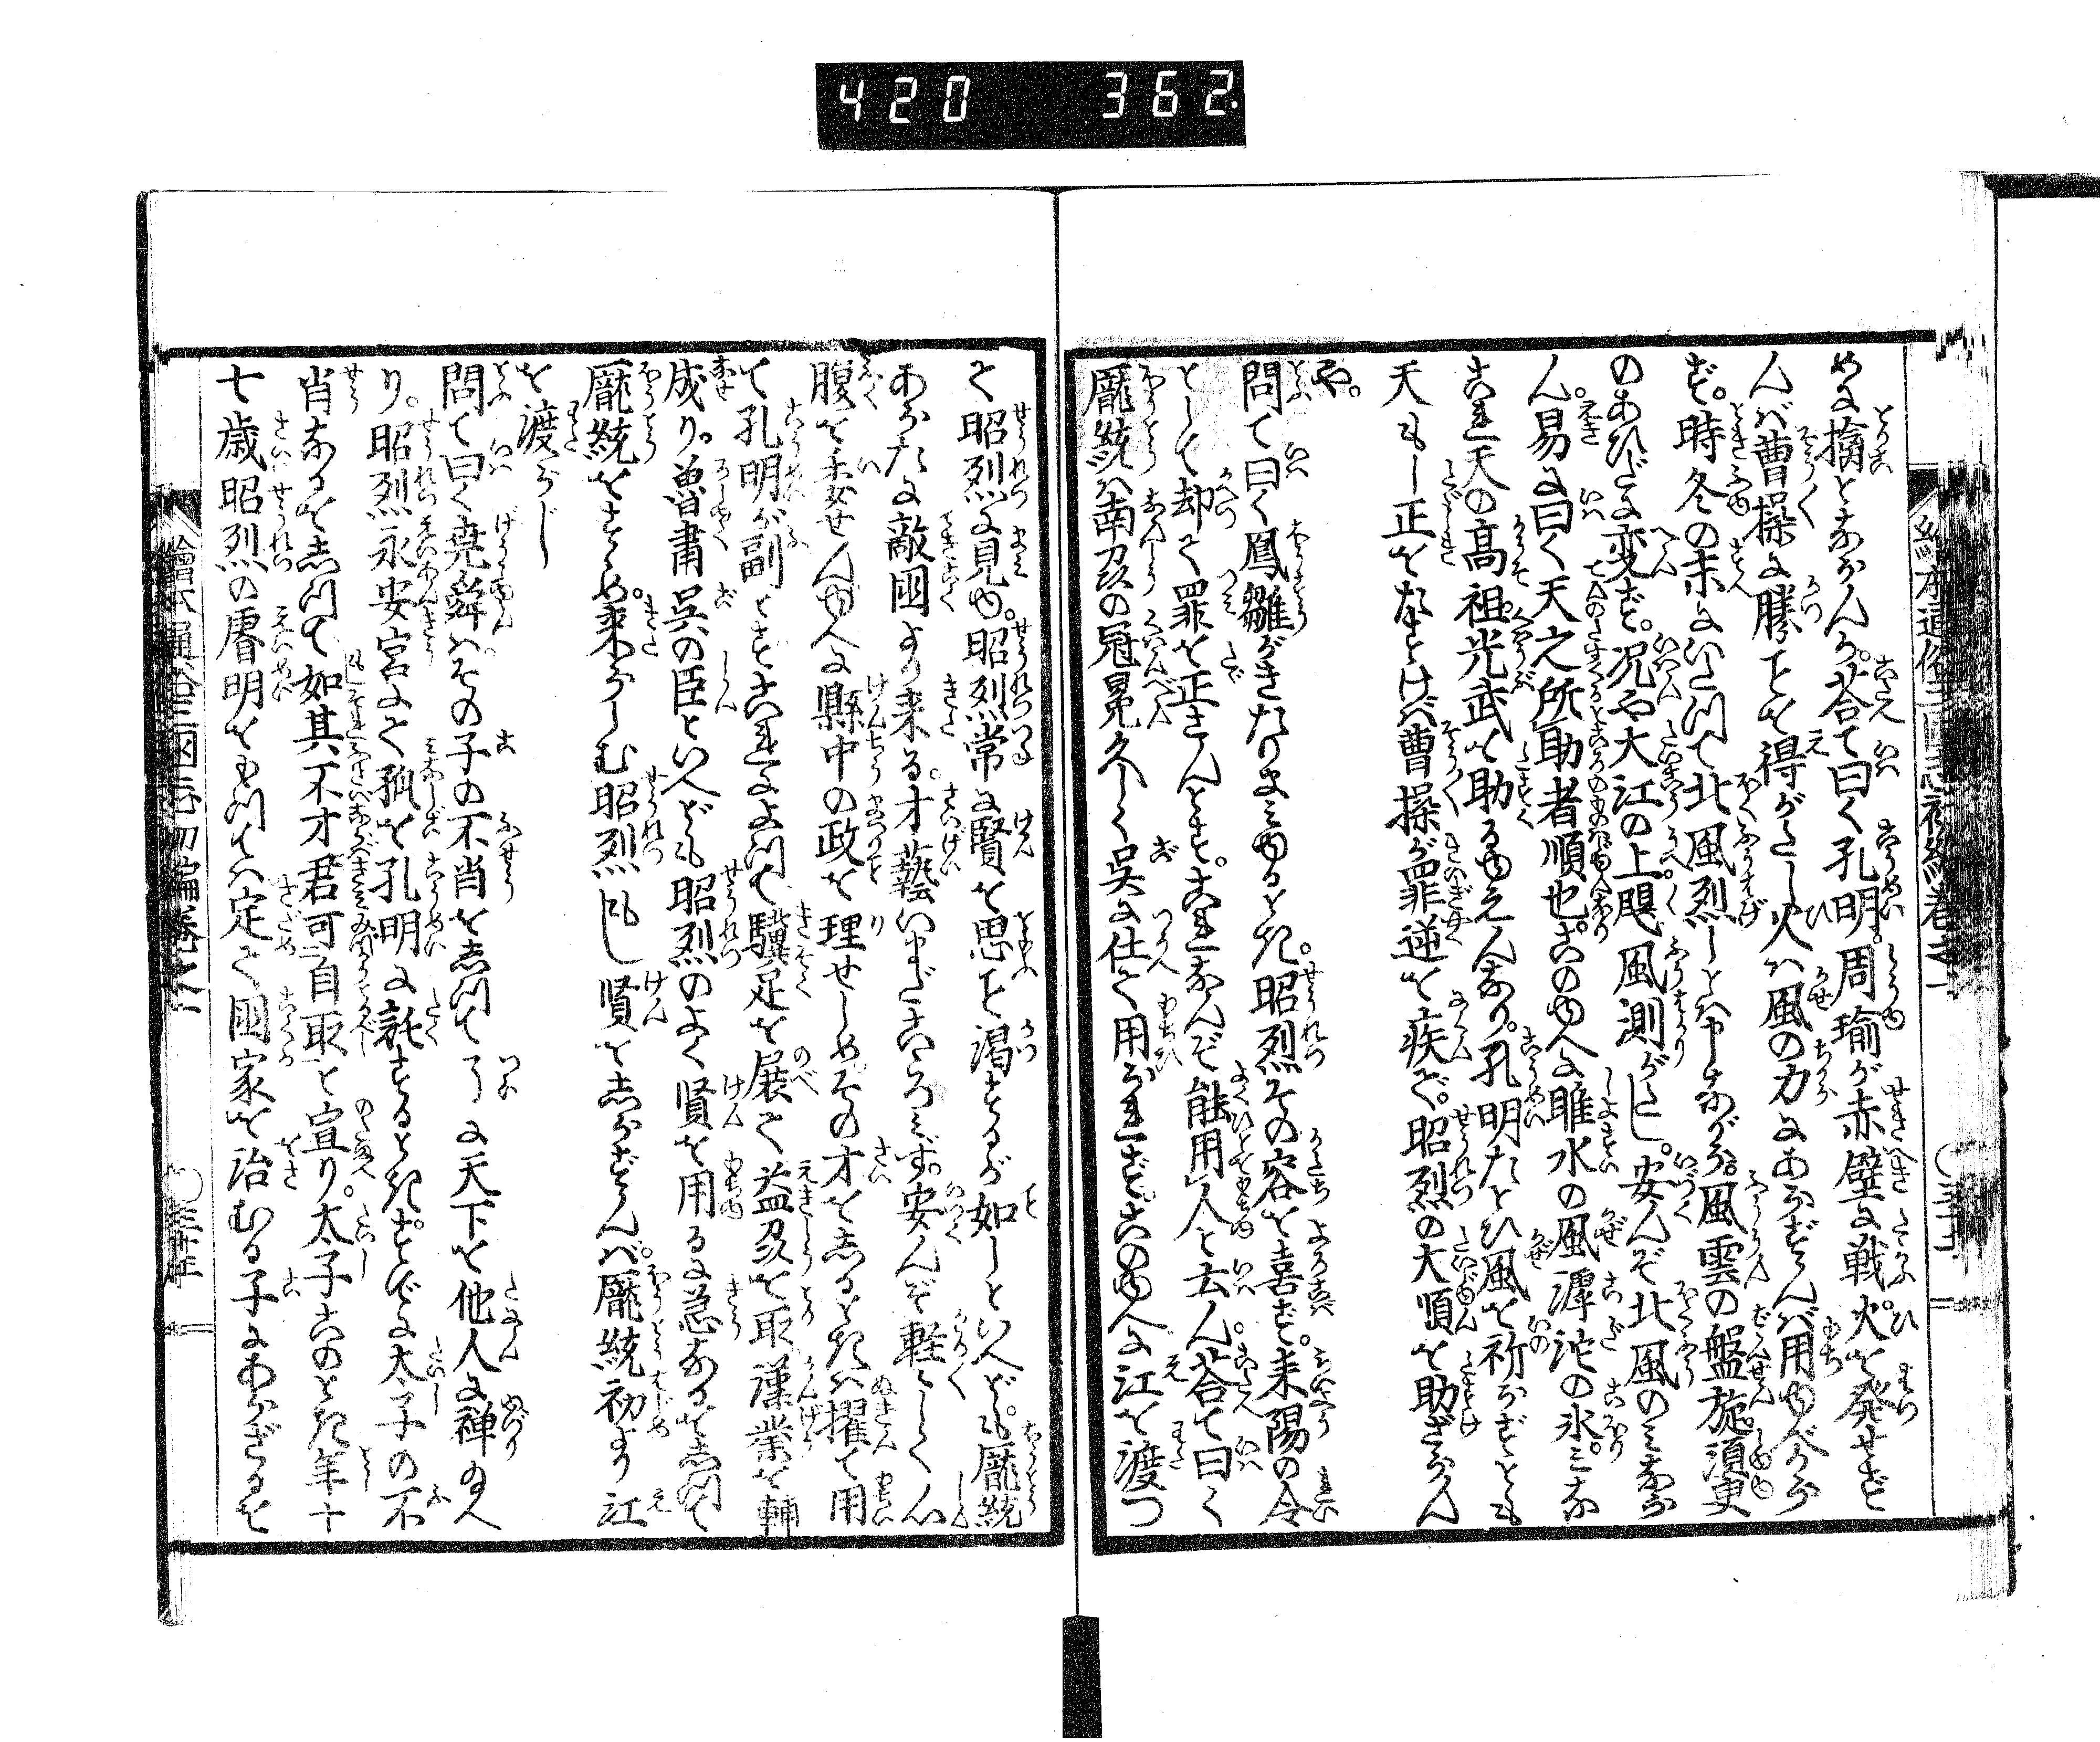 420 362.
めに擒とならんか。荅て曰く孔明。周瑜が赤壁に戦。火を発せず
んバ曹操に勝ことを得がたし火ハ風の力にあらずんバ用ゆべから
ず。時冬の末にいたつて北風烈しといへ𪜈ながら。風雲の盤旋。須臾
のあひだに変ず。况や大江の上颶風測がたし。安んぞ北風のミなら
ん。易に曰く天之所助者順也。このゆへに睢水の風滹沱の氷。ミな
これ天の高祖。光武を助るゆえんなり。孔明たとひ風を祈らずとも
天もし正をたすけバ曹操が罪逆を疾で。昭烈の大順を助ざらん
や。
問て曰く鳳雛がきたりまミゆるとき。昭烈その容を喜ず。耒陽の令
として却て罪を正さんとす。これなんぞ能用人と云ん。荅て曰く
龐統ハ南刕の冠冕久しく呉に仕て用られず。このゆへに江を渡つ
て昭烈に見ゆ。昭烈常に賢を思こと渇するが如しといへども。龐統
あらたに敵國より来る。才藝いまだこゝろミず。安んぞ軽〻しく心
腹を委せんゆへに縣中の政を理せしめその才をしるときハ擢て用
て孔明が副とすこれによつて驥足を展て益刕を取漢業を輔
成り。魯肅呉の臣といへども昭烈のよく賢を用るに急なるをしつて
龐統をすゝめ。来らしむ昭烈もし賢をしらずんバ。龐統初より江
を渡らじ
問て曰く堯舜ハその子の不肖をしつて了に天下を他人に禅りのへ
り。昭烈永安宮にて孤を孔明に託するときすでに太子の不
肖なるをしつて如其不才君可自取と宣り。太子このとき年十
七歳昭烈の睿明をもつてハ定て國家を治むる子にあらざるを
繪本通俗三國志初編卷之一